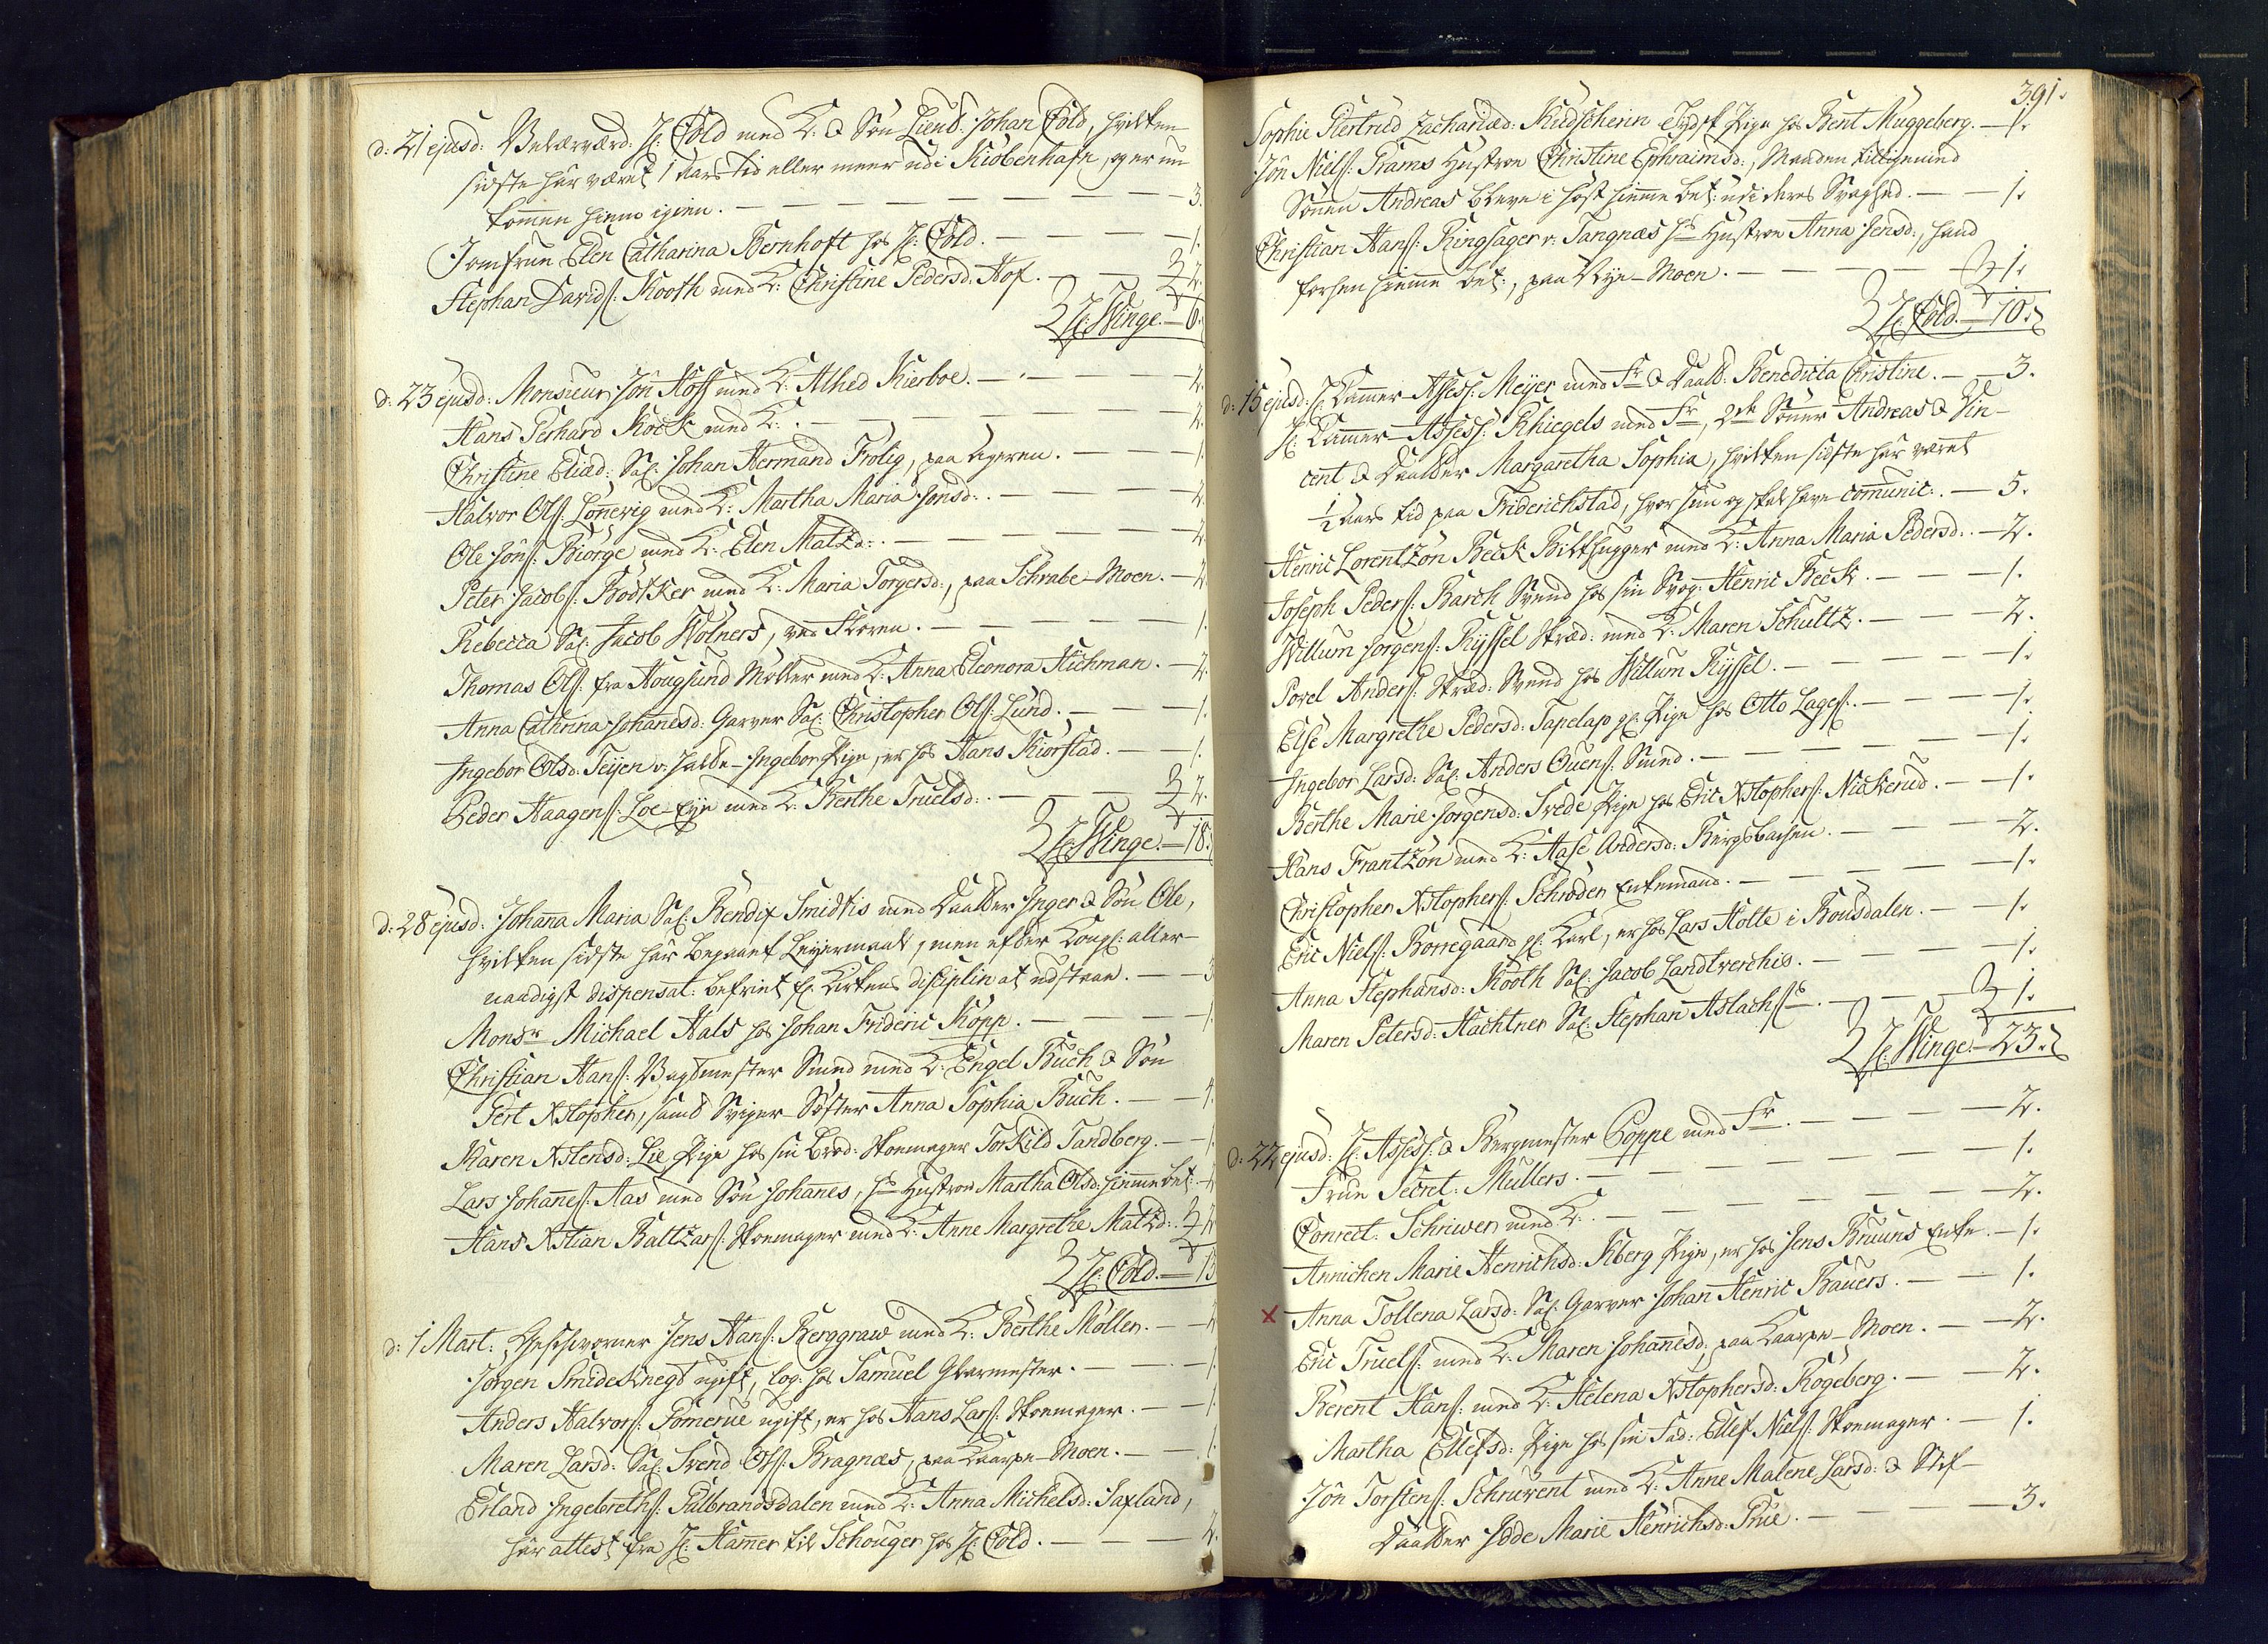 d: 21 ejusd: Velærværd: H: Cold med K: & Søn Lieut: Johan Cold, hvilken
sidste har været 1 Aars tid eller meer udi Kiøbenhafn, og er nu
kommen hiem igien. — 3.
Jomfrue Elen Catharina Bernhoft hos H: Cold. — 1.
Stephan Davids: Kooth med K: Christine Pedersd: Hof. — 2.
H: Winge. — 6.
d: 23 ejusd: Monsieur Jôn Hoff med K: Alhed Kierboe. — 2.
Hans Gerhard Kock med K: — 2.
Christine Eliæd: Sal: Johan Hermand Frolig, paa Ageren. — 1.
Halvor Ols: Lønnevig med K: Martha Maria Jonsd: — 2.
Ole Jôns: Biørge med K: Elen Matzd: — 2.
Peter Jacobs: Bødtker med K: Maria Torgersd:, paa Schrabe-Moen. — 2.
Rebecca Sal: Jacob Wølners, ved Elven. — 1.
Thomas Ols: fra Hougsund Møller med K: Anna Eleonora Hichman. — 2.
Anna Cathrina Johannesd: Garver Sal: Christopher Ols: Lund. — 1.
Ingebor Olsd: Teijen v: Halde-Ingebor Pige, er hos Hans Kiørstad. — 1.
Peder Haagens: Loe-Eije med K: Berthe Truelsd: — 2.
H: Winge. — 18.
d: 28 ejusd: Johanna Maria Sal: Bendix Smidtis med Daatter Inger & Søn Ole,
hvilken sidste har begaaet Leyermaal, men efter Kongl: aller-
naadigst dispensat: befriet fr: Kirkens disciplin at udstaae. — 3
Monsr Michael Hals hos Johan Frideric Kopp. — 1.
Christian Hans: Vagtmester Smed med K: Engel Buch & Søn
Gert Xstopher, samt Sviger-Søster Anna Sophia Buch. — 4.
Karen Xstensd: Lie Pige hos sin Brod: Skoemager Torkild Tandberg. — 1.
Lars Johannes: Aas med Søn Johannes, hs Hustroe Martha Olsd: hiemmebet: — 2
Hans Xstian Baltzars: Skoemager med K: Anne Margrethe Matzd: 2
H: Cold. — 13
d: 1 Mart: Gheschworner Jens Hans: Berggraw med K: Berthe Møller. — 2
Jørgen Smideknegt ugift, log: hos Samuel Glarmester. — 1.
Anders Halvors: Pomerue ugift, er hos Hans Lars: Skoemager. — 1.
Maren Larsd: Sal: Svend Ols: Bragnæs, paa Kaarpe-Moen. — 1.
Erland Ingebreths: Gulbrandsdalen med K: Anna Michelsd: Saxland,
har attest fra H: Hamer til Schouger hos H: Cold. — 2.
391.
Sophie Giertrud Zachariæd: Kudscherin Tydsk Pige hos Bent Muggeberg. — 1.
Jôn Niels: Grams Hustroe Christine Ephraimsd:, Manden tilligemed
Sønnen Andreas bleve i Høst hiemme bet: udi deres Svaghed. — 1.
Christian Hans: Ringsager v: Tangnæs hs Hustroe Anna Jensd:, hand
forhen hiemme bet:, paa Rye-Moen. — 1.
H: Cold. — 10.
d: 15 ejusd: H: Kammer-Assess: Meijer med Fr & Daatt: Benedicta Christine. — 3.
H: Kammer-Assess: Rhiegels med Fr, 2de Sønner Andreas & Vin-
cent & Daatter Margaretha Sophia, hvilken sidste har været
1/2 Aars tid paa Friderichstad, hvor hun og skal have communic: — 5.
Henric Lorentzôn Beck Bilthugger med K: Anna Maria Pedersd: — 2.
Joseph Peders: Barch Svend hos sin Svog: Henric Beck. — 1.
Willum Jørgens: Ryssel Skræd: med K: Maren Schultz. — 2.
Povel Anders: Skræd: Svend hos Willum Ryssel. — 1.
Else Margrethe Pedersd: Tapelap gl: Pige hos Otto Lages: — 1.
Ingebor Larsd: Sal: Anders Ouens: Smed. — 1.
Berthe Marie Jørgensd: Svede Pige hos Eric Xstophers: Nickerud. — 1.
Hans Frantzôn med K: Aase Andersd: Bergsbachen. — 2.
Christopher Xstophers: Schrøder Enkemand. — 1.
Eric Niels: Borregaard gl: Karl, er hos Lars Holte i Bousdalen. — 1.
Anna Stephansd: Kooth Sal: Jacob Landtverchis. — 1.
Maren Petersd: Hachtner Sal: Stephan Aslachs:s. — 1.
H: Winge. — 23.
d: 22 ejusd: H: Assess: & Bergmester Coppe med Fr. — 2.
Frue Secret: Mullers. — 1.
Conrect: Schriwer med K: — 2.
Annichen Marie Henrichsd: Kberg Pige, er hos Jens Bruuns Enke. — 1.
x Anna Tollena Larsd: Sal: Garver Johan Henric Bauers. — 1.
Eric Truels: med K: Maren Johannesd: paa Kaarpe-Moen. — 2.
Berent Hans: med K: Helena Xstophersd: Røgeberg. — 2.
Martha Ellefsd: Pige hos sin Fad: Ellef Niels: Skoemager. — 1.
Jôn Torstens: Schruvent med K: Anne Malene Larsd: & Stif-
Daatter Idde Marie Henrichsd: Prüe. — 3.